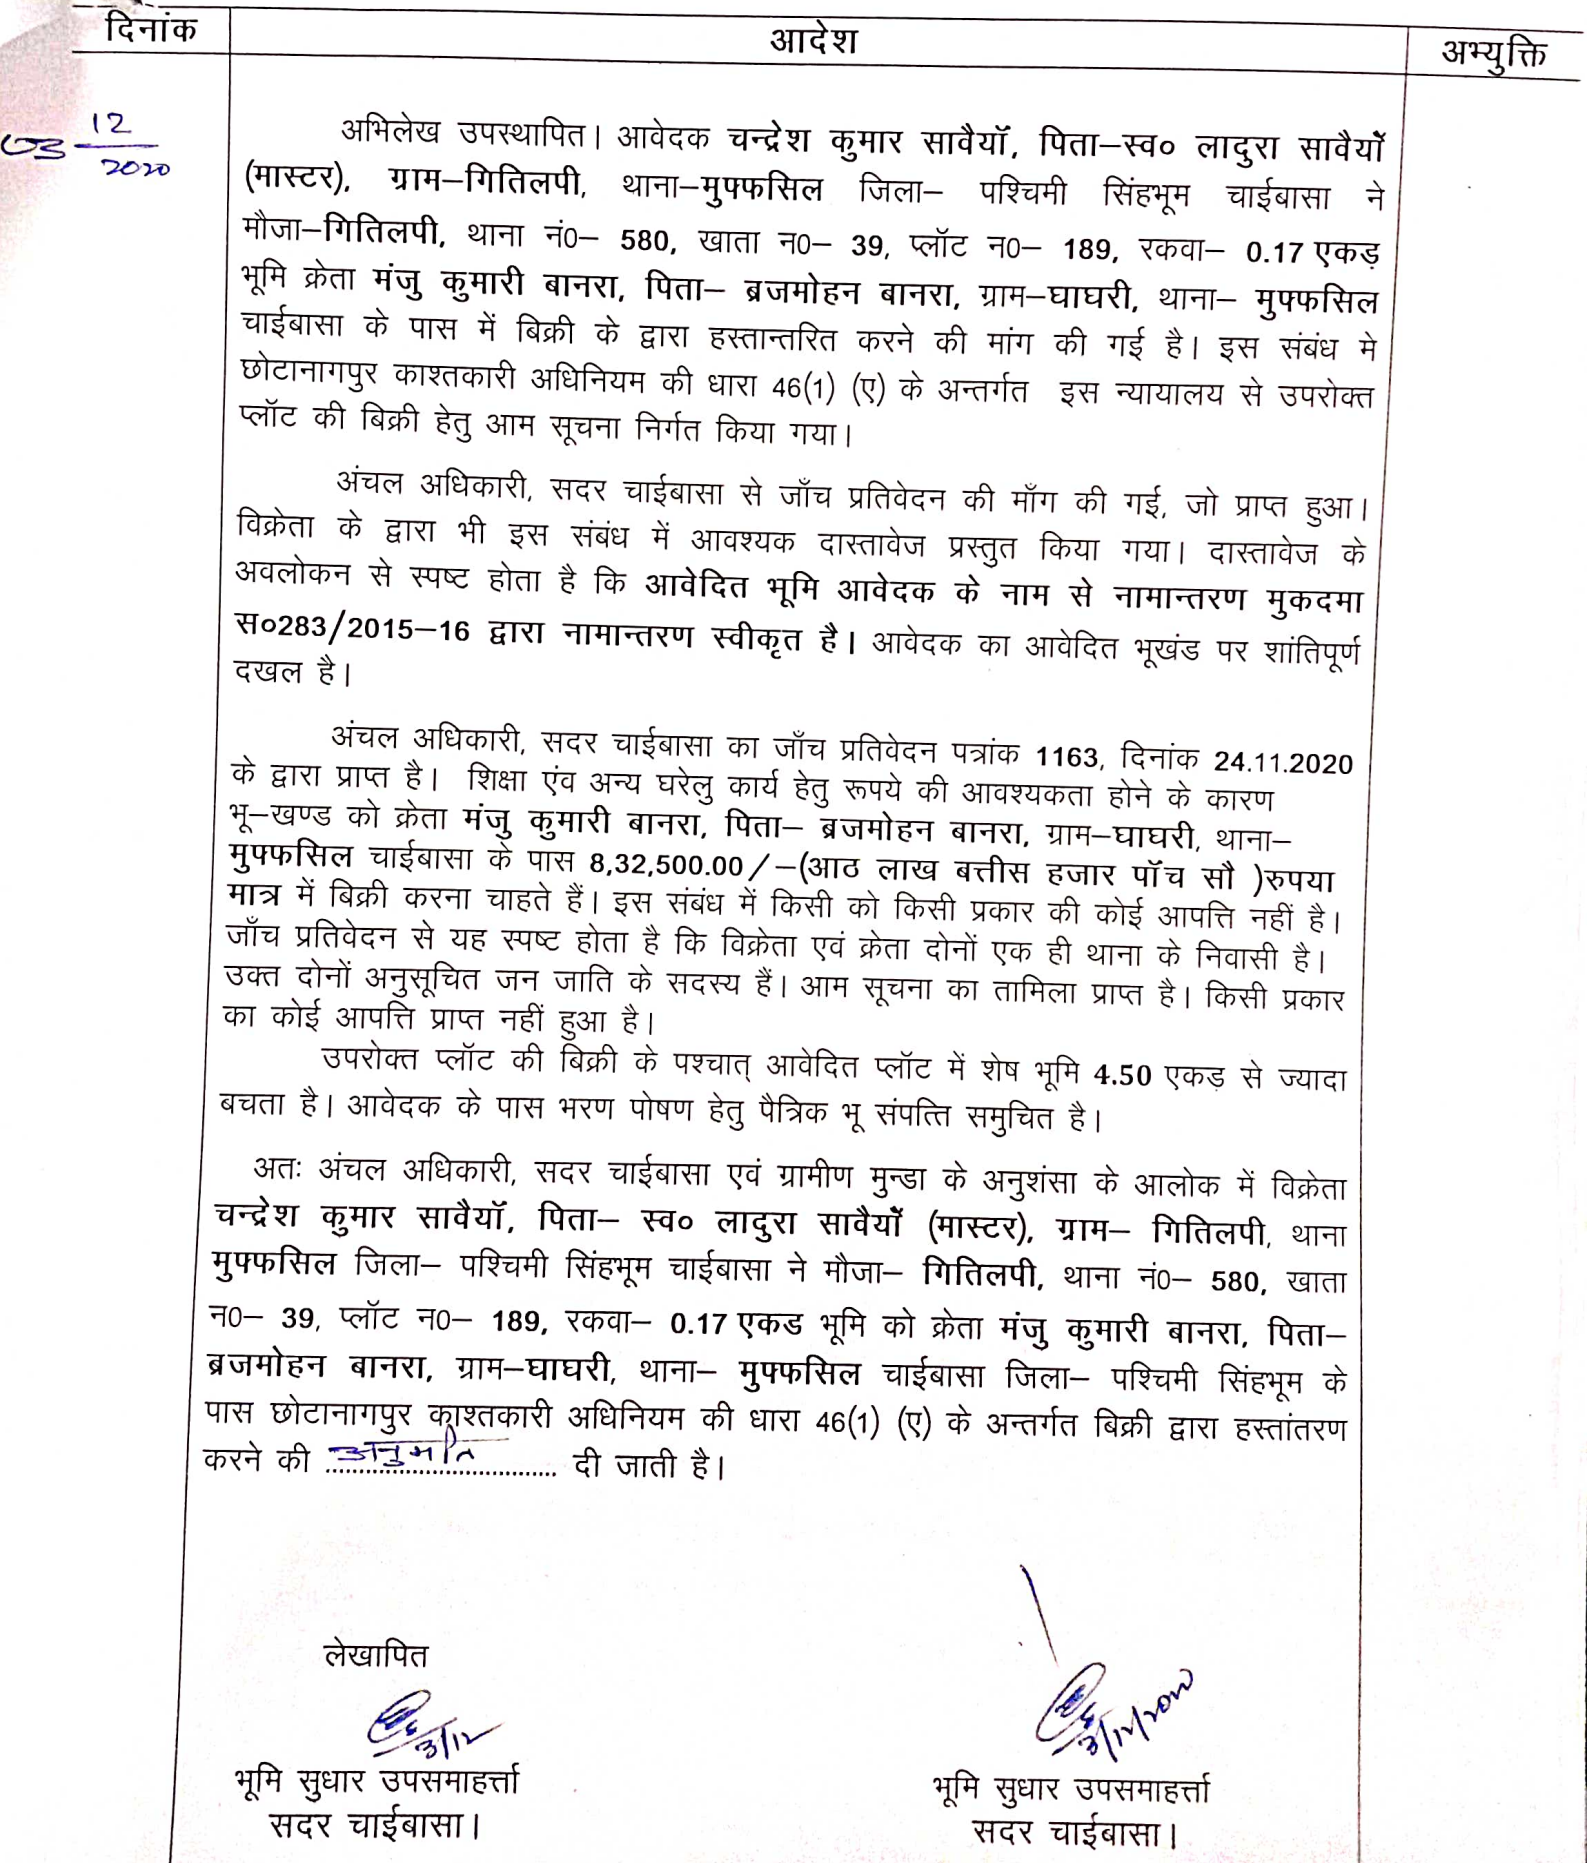 दिनांक आदेश अभ्युक्ति
03 12/2020
अभिलेख उपस्थापित। आवेदक चन्द्रेश कुमार सावैयॉ, पिता–स्व० लादुरा सावैयॉ
(मास्टर), ग्राम–गितिलपी, थाना–मुफ्फसिल जिला– पश्चिमी सिंहभूम चाईबासा ने
मौजा–गितिलपी, थाना नं0– 580, खाता न0– 39, प्लॉट न0– 189, रकवा– 0.17 एकड़
भूमि क्रेता मंजु कुमारी बानरा, पिता– ब्रजमोहन बानरा, ग्राम–घाघरी, थाना– मुफ्फसिल
चाईबासा के पास में बिक्री के द्वारा हस्तान्तरित करने की मांग की गई है। इस संबंध मे
छोटानागपुर काश्तकारी अधिनियम की धारा 46(1) (ए) के अन्तर्गत इस न्यायालय से उपरोक्त
प्लॉट की बिक्री हेतु आम सूचना निर्गत किया गया।
अंचल अधिकारी, सदर चाईबासा से जाँच प्रतिवेदन की माँग की गई, जो प्राप्त हुआ।
विक्रेता के द्वारा भी इस संबंध में आवश्यक दास्तावेज प्रस्तुत किया गया। दास्तावेज के
अवलोकन से स्पष्ट होता है कि आवेदित भूमि आवेदक के नाम से नामान्तरण मुकदमा
स०283/2015–16 द्वारा नामान्तरण स्वीकृत है। आवेदक का आवेदित भूखंड पर शांतिपूर्ण
दखल है।
अंचल अधिकारी, सदर चाईबासा का जाँच प्रतिवेदन पत्रांक 1163, दिनांक 24.11.2020
के द्वारा प्राप्त है। शिक्षा एंव अन्य घरेलु कार्य हेतु रूपये की आवश्यकता होने के कारण
भू–खण्ड को क्रेता मंजु कुमारी बानरा, पिता– ब्रजमोहन बानरा, ग्राम–घाघरी, थाना–
मुफ्फसिल चाईबासा के पास 8,32,500.00/–(आठ लाख बत्तीस हजार पॉच सौ )रुपया
मात्र में बिक्री करना चाहते हैं। इस संबंध में किसी को किसी प्रकार की कोई आपत्ति नहीं है।
जाँच प्रतिवेदन से यह स्पष्ट होता है कि विक्रेता एवं क्रेता दोनों एक ही थाना के निवासी है।
उक्त दोनों अनुसूचित जन जाति के सदस्य हैं। आम सूचना का तामिला प्राप्त है। किसी प्रकार
का कोई आपत्ति प्राप्त नहीं हुआ है।
उपरोक्त प्लॉट की बिक्री के पश्चात् आवेदित प्लॉट में शेष भूमि 4.50 एकड़ से ज्यादा
बचता है। आवेदक के पास भरण पोषण हेतु पैत्रिक भू संपत्ति समुचित है।
अतः अंचल अधिकारी, सदर चाईबासा एवं ग्रामीण मुन्डा के अनुशंसा के आलोक में विक्रेता
चन्द्रेश कुमार सावैयॉ, पिता– स्व० लादुरा सावैयॉ (मास्टर), ग्राम– गितिलपी, थाना
मुफ्फसिल जिला– पश्चिमी सिंहभूम चाईबासा ने मौजा– गितिलपी, थाना नं0– 580, खाता
न0– 39, प्लॉट न0– 189, रकवा– 0.17 एकड भूमि को क्रेता मंजु कुमारी बानरा, पिता–
ब्रजमोहन बानरा, ग्राम–घाघरी, थाना– मुफ्फसिल चाईबासा जिला– पश्चिमी सिंहभूम के
पास छोटानागपुर काश्तकारी अधिनियम की धारा 46(1) (ए) के अन्तर्गत बिक्री द्वारा हस्तांतरण
करने की अनुमति दी जाती है।
लेखापित
3/12 3/12/2020
भूमि सुधार उपसमाहर्त्ता भूमि सुधार उपसमाहर्त्ता
सदर चाईबासा। सदर चाईबासा।